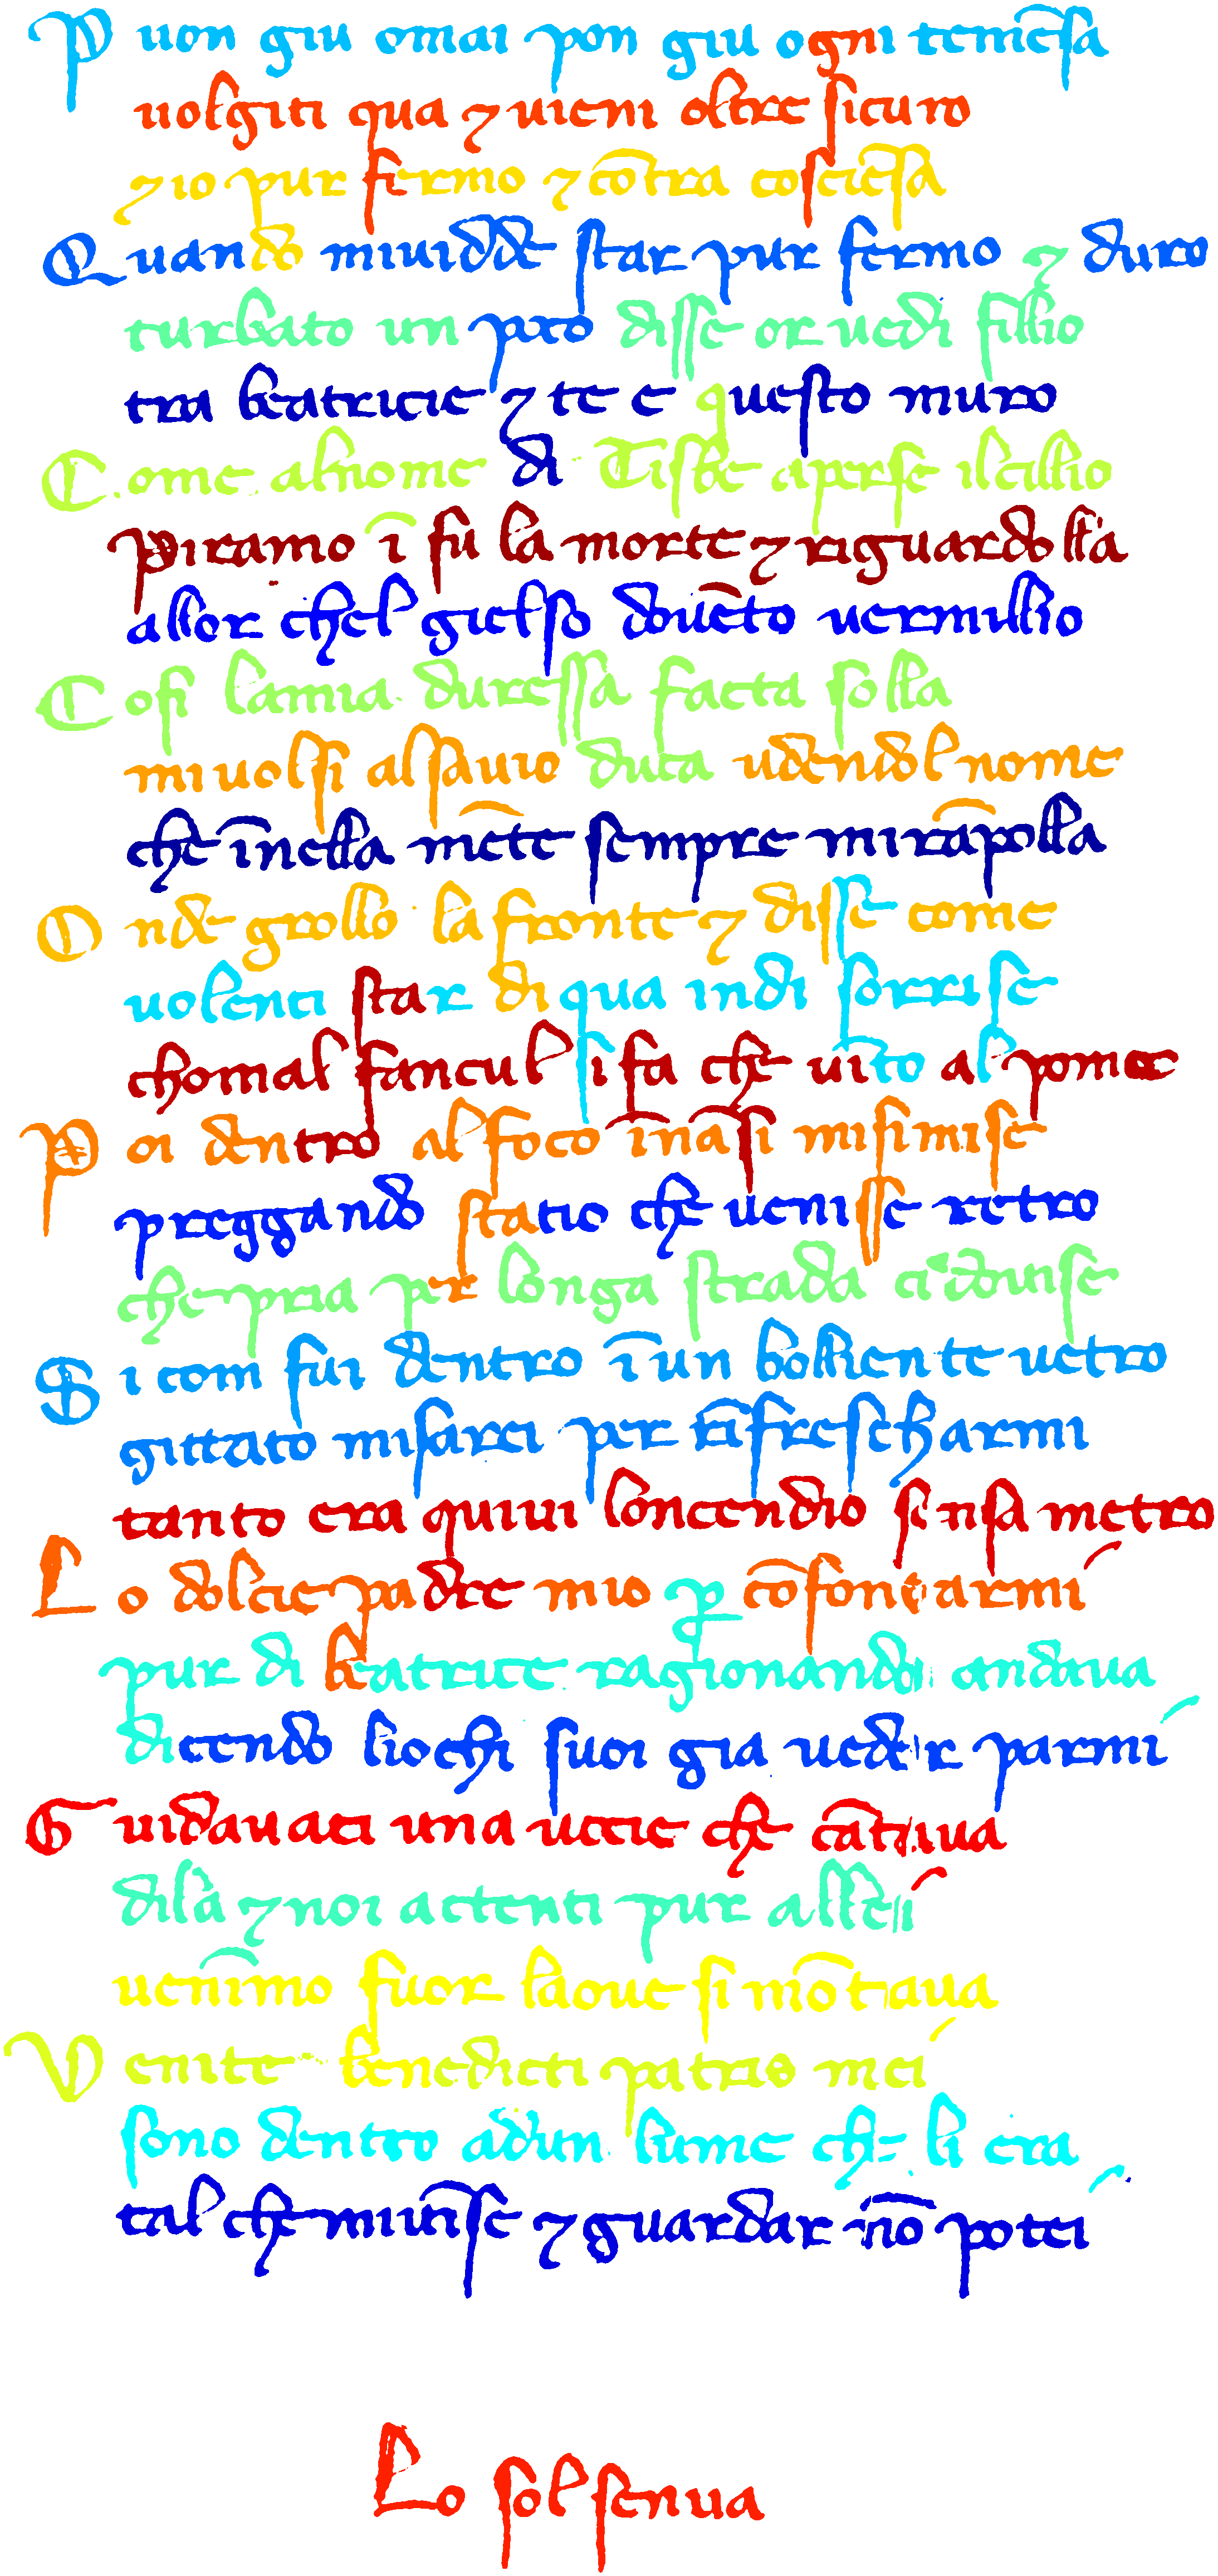 Puon giu omai pon giu ogni temēſa
uolgiti qua ⁊ uieni oltre ſicuro
⁊ io pur fermo ⁊ cōtra coſciēſa
Quando miuidde ſtar pur fermo ⁊ duro
turbato un pᷓo diſſe or uedi fillio
tra beatricie ⁊ te e queſto muro
Come alnome di Tiſbe aperſe ilcillio
Piramo ī fu la morte ⁊ riguardolla
allor chel gielſo douēto uermillio
Coſi lamia dureſſa facta ſolla
miuolſi alſauio duca udendol nome
che īnella mēte ſempre mirāpolla
Onde grollo la fronte ⁊ diſſe come
uolenti ſtar di qua indi ſorriſe
chomal fancul ſi fa che uīto al pome
Poi dentro al foco īnāſi miſimiſe
preggando ſtatio che ueniſſe retro
che pria per longa ſtrada ci douiſe
Si com fui dentro ī un bolliente uetro
gittato miſarei per rīfreſcharmi
tanto era quiui loncendio ſenſa metro
Lo dolcie padre mio ꝑ cōfortarmi
pur di beatrice ragionando andaua
dicendo liochi ſuoi gia ueder parmi
Guidauaci una uccie che cātaua
dila ⁊ noi actenti pur allei
uenīmo fuor laoue ſi mōtaua
Venite benedicti patris mei
ſono dentro adun lume che li era
tal che miuīſe ⁊ guardar nō potei
Lo ſol ſenua